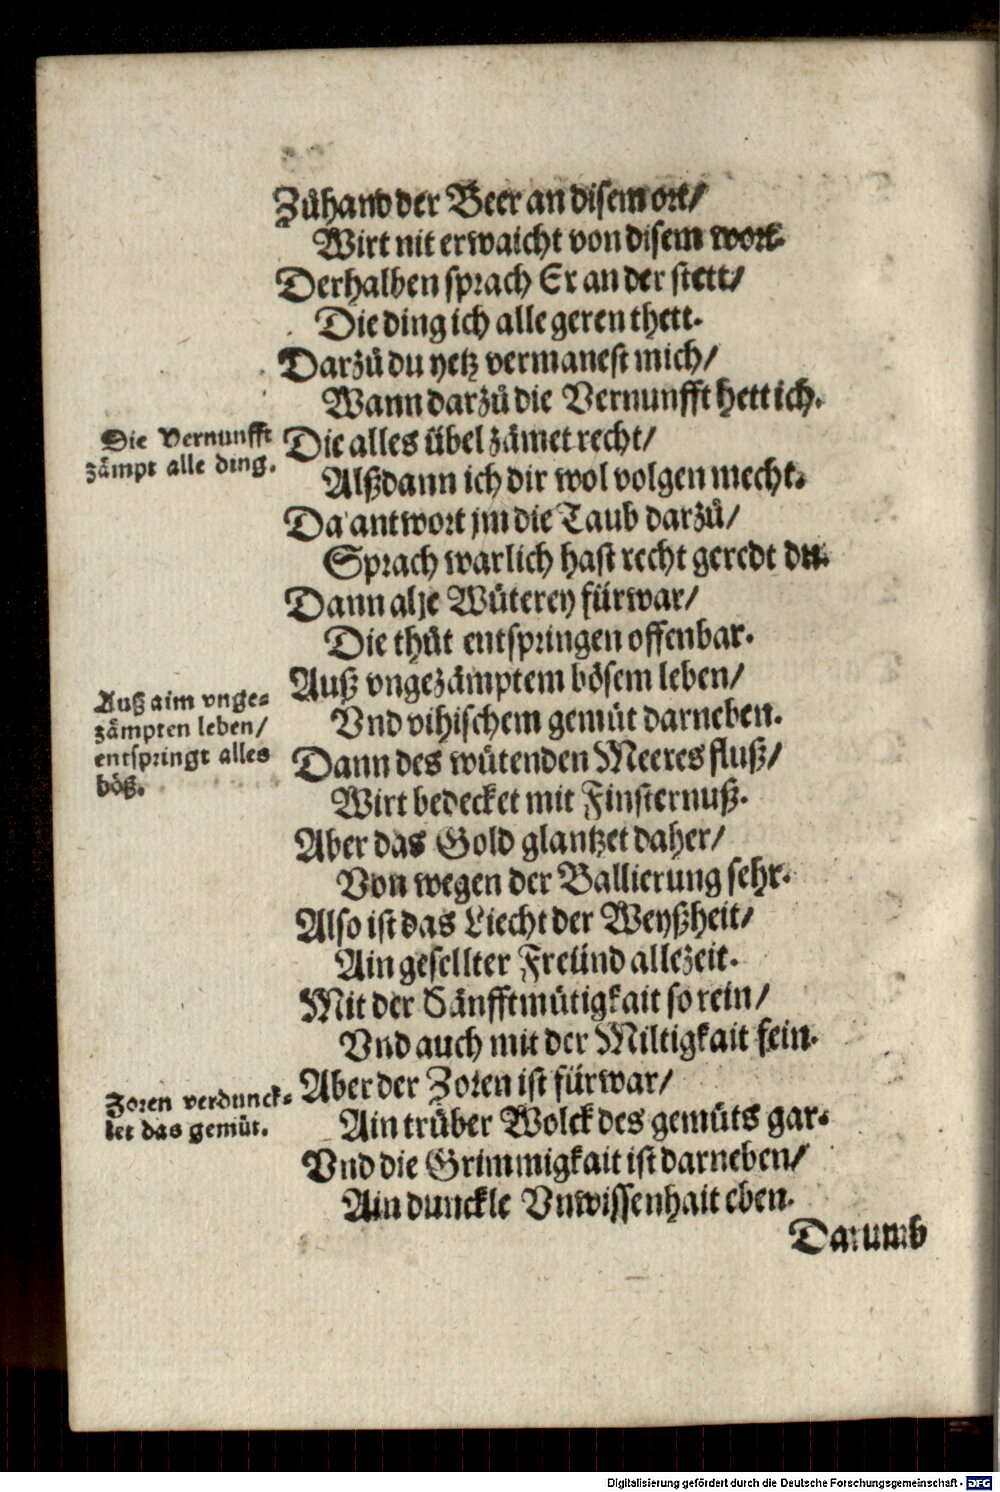 Zůhand der Beer an disem ort/
Wirt nit erwaicht von disem wort.
Derhalben sprach Er an der stett/
Die ding ich alle geren thett.
Darzů du yetz vermanest mich/
Wann darzů die Vernunfft hett ich.
Die Vernunfft
zämpt alle ding.
Die alles übel zämet recht/
Alßdann ich dir wol volgen mecht.
Da antwort jm die Taub darzů/
Sprach warlich hast recht geredt du.
Dann alle Wüterey fürwar/
Die thůt entspringen offenbar.
Auß aim vnge-
zämpten leben/
entspringt alles
böß.
Auß vngezämptem bösem leben/
Vnd vihischem gemüt darneben.
Dann des wütenden Meeres fluß/
Wirt bedecket mit Finsternuß.
Aber das Gold glantzet daher/
Von wegen der Ballierung sehr.
Also ist das Liecht der Weyßheit/
Ain gesellter Freünd allezeit.
Mit der Sänfftmütigkait so rein/
Vnd auch mit der Miltigkait fein.
Zoren verdunck-
let das gemüt.
Aber der Zoren ist fürwar/
Ain trüber Wolck des gemüts gar.
Vnd die Grimmigkait ist darneben/
Ain dunckle Vnwissenhait eben.
Darumb
Digitalisierung gefördert durch die Deutsche Forschungsgemeinschaft - DFG